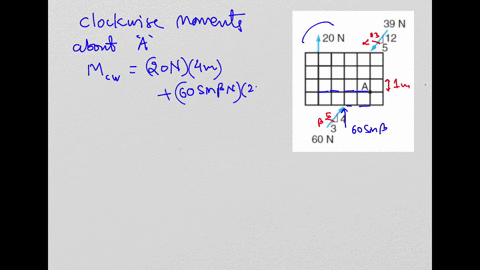 clockwise moments
about 'A'
M_cw = (20N)(4m)
+(60 sinβ N)(2
20 N
39 N
13
12
α
5
A
1m
β
5
4
3
60 sinβ
60 N